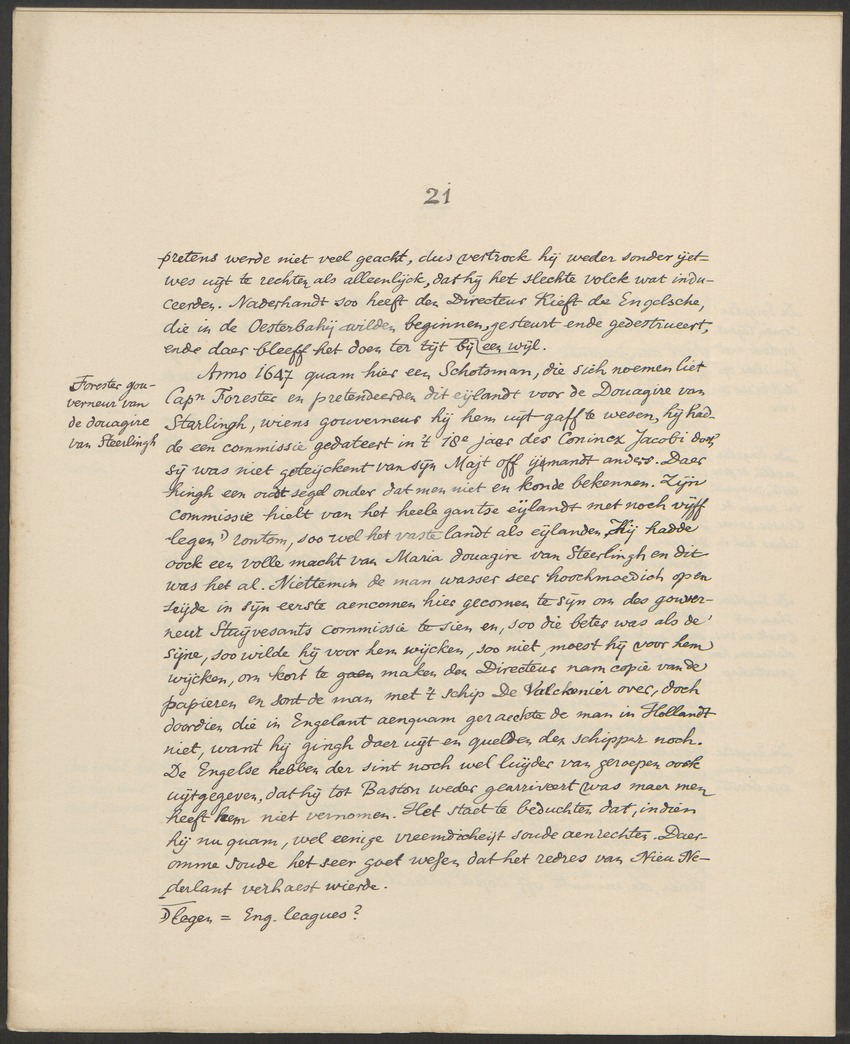 21
pretens werde niet veel geacht, dus vertrock hij weder sonder ijet=
wes uijt te rechten als alleenlijck, dat hij het slechte volck wat indu-
ceerden. Naderhandt soo heeft den Directeur Kieft de Engelsche,
die in de Oesterbahij wilden beginnen, gesteurt ende gedestrueert,
ende daer bleeff het doen ter tijt bij een wijl.
Forester gou-
verneur van
de douagire
van Steerlingh
Anno 1647 quam hier een Schotsman, die sich noemen liet
Capn Forester en pretendeerden dit eijlandt voor de Douagire van
Starlingh, wiens gouverneur hij hem uijt gaff te wesen, hij had-
de een commissie gedateert in 't 18e jaer des Conincx Jacobi doch
sij was niet geteijckent van sijn Majt off ijemandt anders. Daer
hingh een oudt segel onder dat men niet en konde bekennen. Zijn
commissie hielt van het heele gantse eijlandt met noch vijff
legen 1) rontom, soo wel het vaste landt als eijlanden, Hij hadde
oock een volle macht van Maria douagire van Steerlingh en dit
was het al. Niettemin de man wasser seer hoochmoedich op en
seijde in sijn eerste aencomen hier gecomen te sijn om des gouver-
neur Stuijvesants commissie te sien en, soo die beter was als de
sijne, soo wilde hij voor hem wijcken, soo niet, moest hij voor hem
wijcken, om kort te gaen maken den Directeur nam copie van de
papieren en sont de man met 't schip De Valckenier over, doch
doordien die in Engelant aenquam geraeckte de man in Hollandt
niet, want hij gingh daer uijt en quelden den schipper noch.
De Engelse hebben der sint noch wel luijder van geroepen oock
uijtgegeven, dat hij tot Baston weder gearriveert was maer men
heeft hem niet vernomen. Het staet te beduchten dat, indien
hij nu quam, wel eenige vreemdicheijt soude aenrechten. Daer-
omme soude het seer goet wesen dat het redres van Nieu Ne-
derlant verhaest wierde.
1) legen = Eng. leagues?